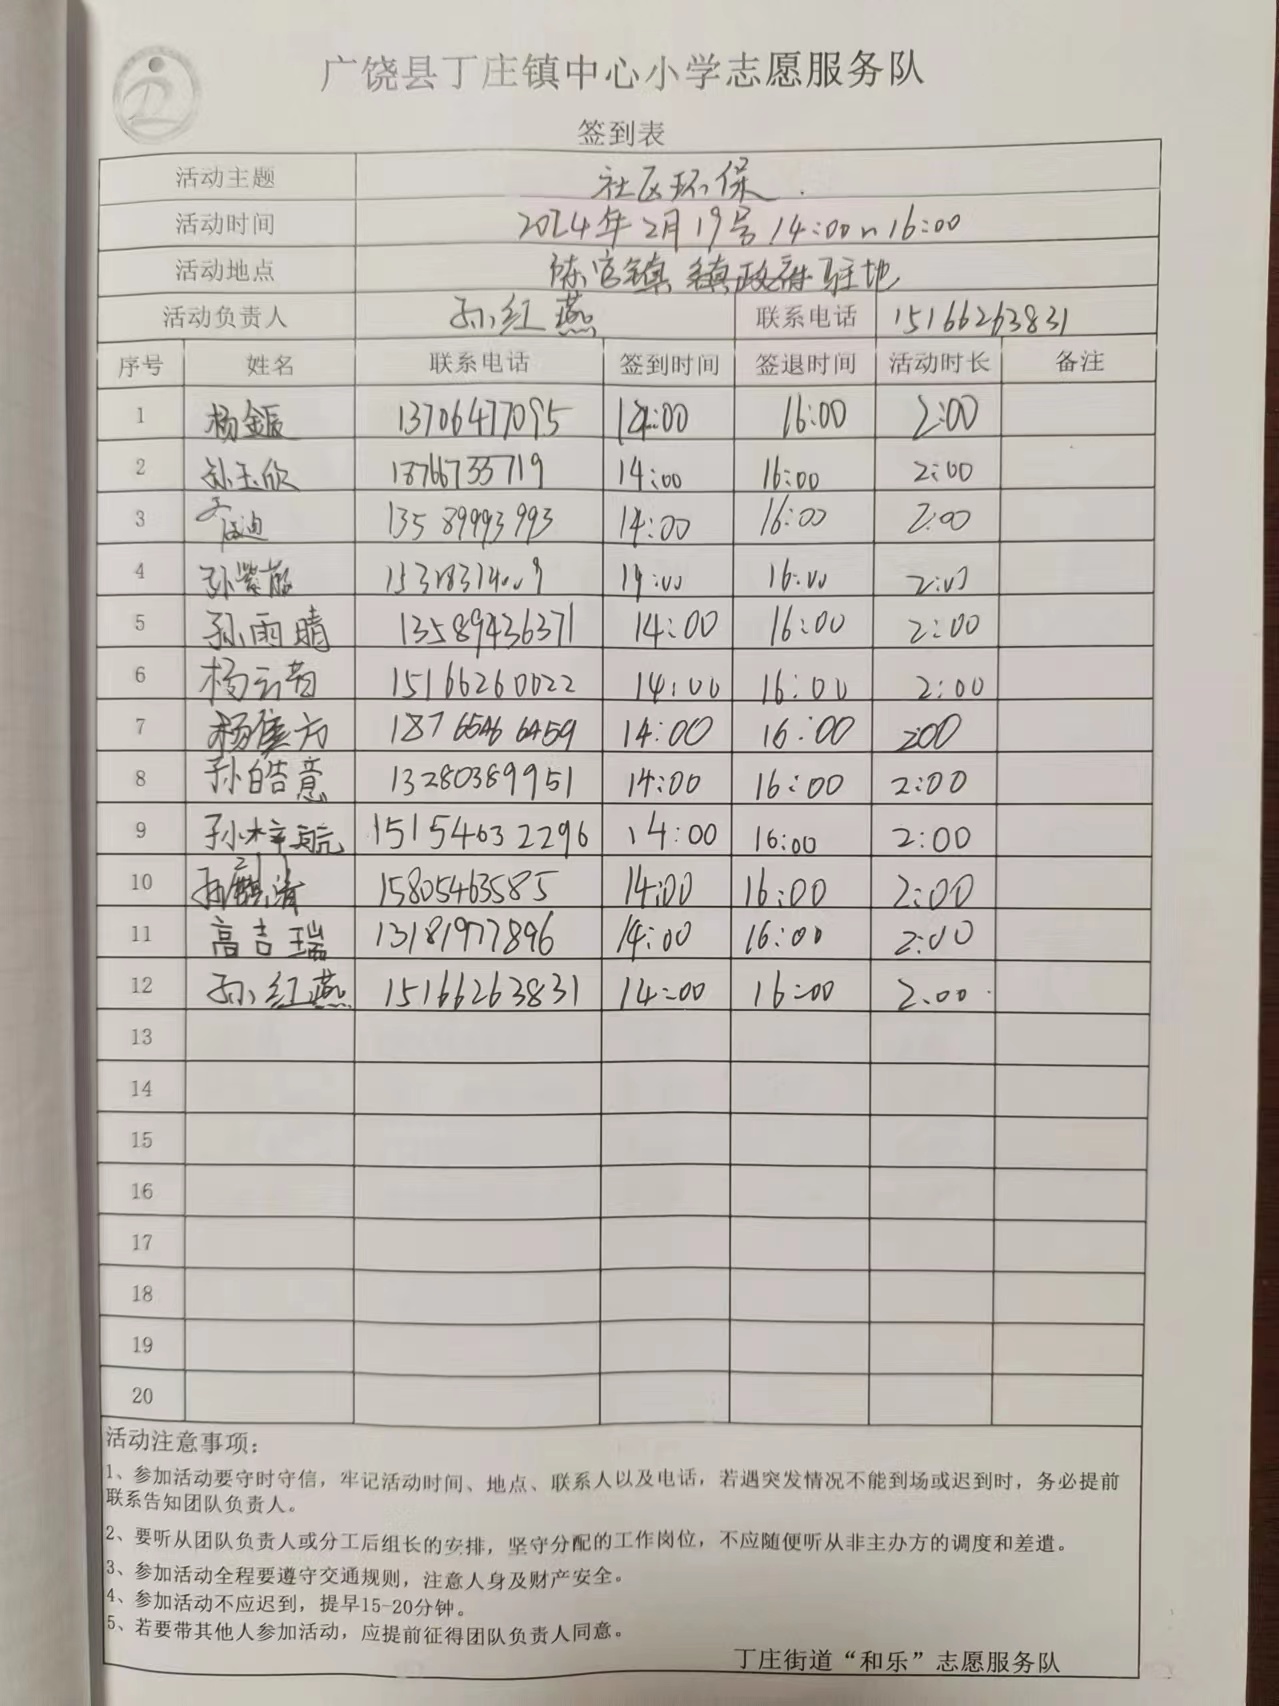 广饶县丁庄镇中心小学志愿服务队
签到表
活动主题 社区环保.
活动时间 2024年2月19号 14:00~16:00
活动地点 陈官镇 镇政府驻地
活动负责人 孙红燕 联系电话 15166263831
序号 姓名 联系电话 签到时间 签退时间 活动时长 备注
1 杨 13706477095 14:00 16:00 2:00
2 孙玉欣 18766733719 14:00 16:00 2:00
3 迪 13589993993 14:00 16:00 2:00
4 孙紫 14:00 16:00 2:00
5 孙雨晴 13589436371 14:00 16:00 2:00
6 杨云 15166260022 14:00 16:00 2:00
7 杨 方 18765466459 14:00 16:00 200
8 孙皓意 13280389951 14:00 16:00 2:00
9 孙梓航 151546322296 14:00 16:00 2:00
10 孙 15805463585 14:00 16:00 2:00
11 高吉瑞 13181977896 14:00 16:00 2:00
12 孙红燕 15166263831 14:00 16:00 2.00
13
14
15
16
17
18
19
20
活动注意事项：
1、参加活动要守时守信，牢记活动时间、地点、联系人以及电话，若遇突发情况不能到场或迟到时，务必提前
联系告知团队负责人。
2、要听从团队负责人或分工后组长的安排，坚守分配的工作岗位，不应随便听从非主办方的调度和差遣。
3、参加活动全程要遵守交通规则，注意人身及财产安全。
4、参加活动不应迟到，提早15-20分钟。
5、若要带其他人参加活动，应提前征得团队负责人同意。
丁庄街道“和乐”志愿服务队